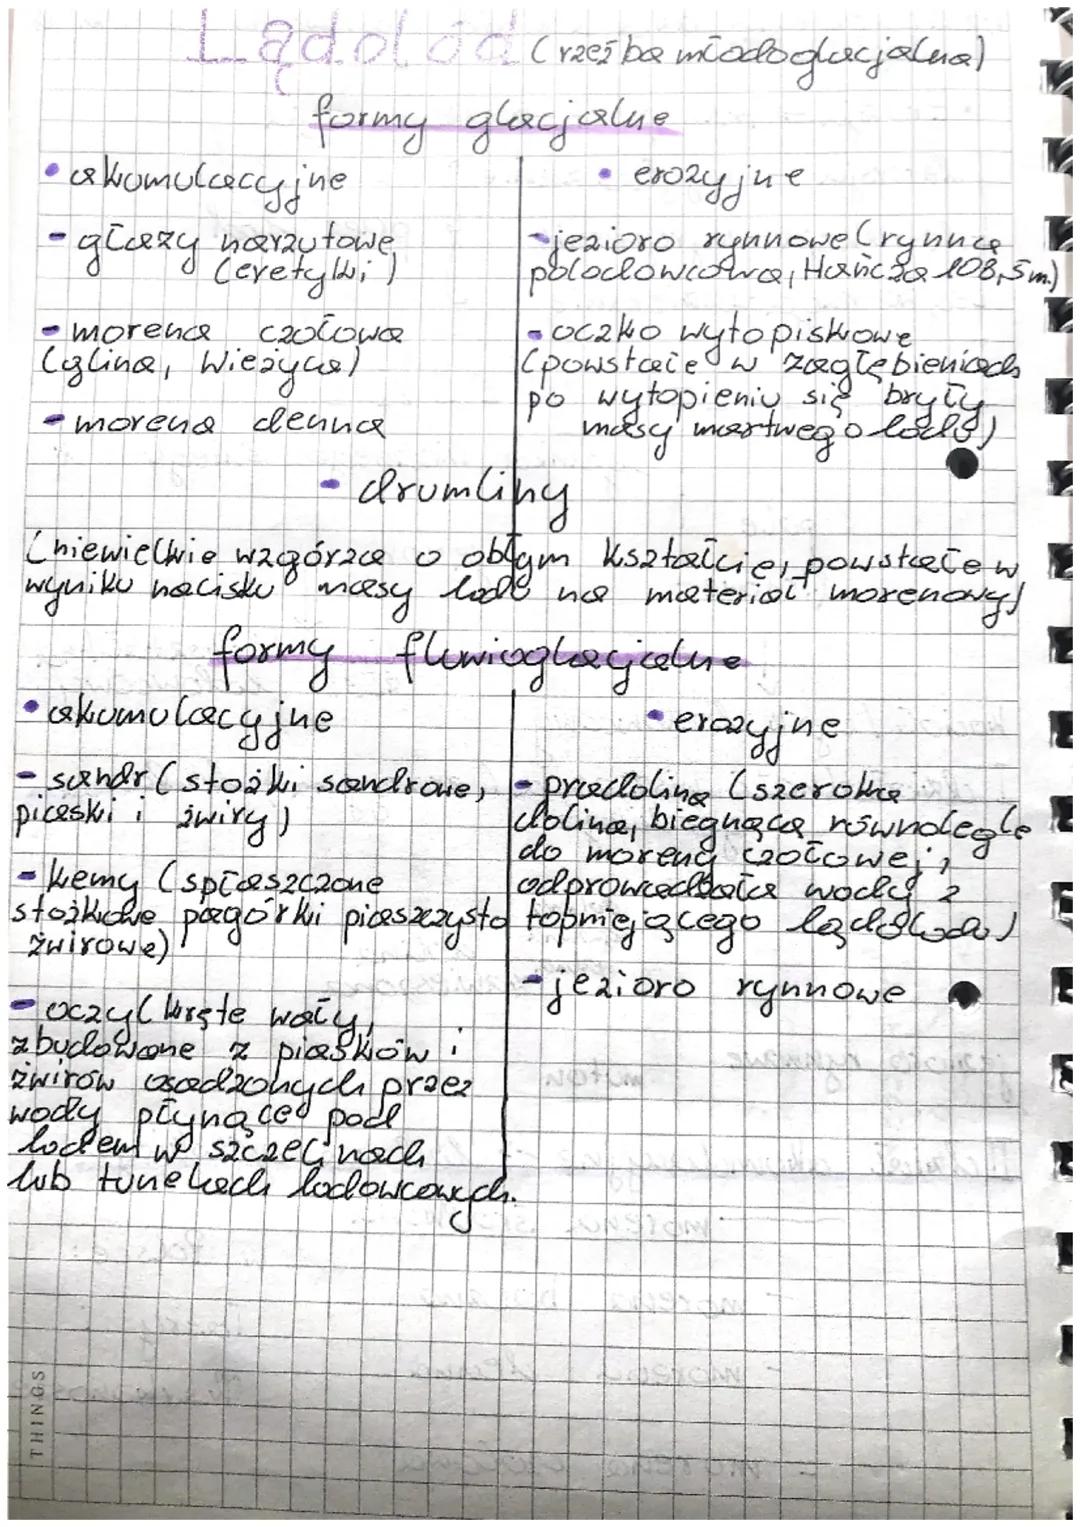 Lądolód (rzeźba młodoglacjalna)
formy glacjalne
• akumulacyjne
- głazy narzutowe
(eretyki)
- morena czołowa
(glina, Wieżyca)
- morena denna
• erozyjne
- jezioro rynnowe (rynna
polodowcowa, Hańcza 108,5 m)
- oczko wytopiskowe
(powstałe w zagłębieniach
po wytopieniu się bryły
masy martwego lodu)
- drumliny
(niewielkie wzgórza o obłym kształcie, powstałe w
wyniku nacisku masy lodu na materiał morenowy)
formy fluwioglacjalne
• akumulacyjne
- sandr (stożki sandrowe,
piaski i żwiry)
- kemy (spłaszczone
stożkowe pagórki piaszczysto
żwirowe)
- oczy (kręte wały,
zbudowane z piasków i
żwirów osadzonych przez
wody płynące pod
lodem w szczelinach
lub tunelach lodowcowych.
• erozyjne
- pradolina (szeroka
dolina, biegnąca równolegle
do moreny czołowej,
odprowadzała wody z
topniejącego lądolodu)
- jezioro rynnowe
THINGS